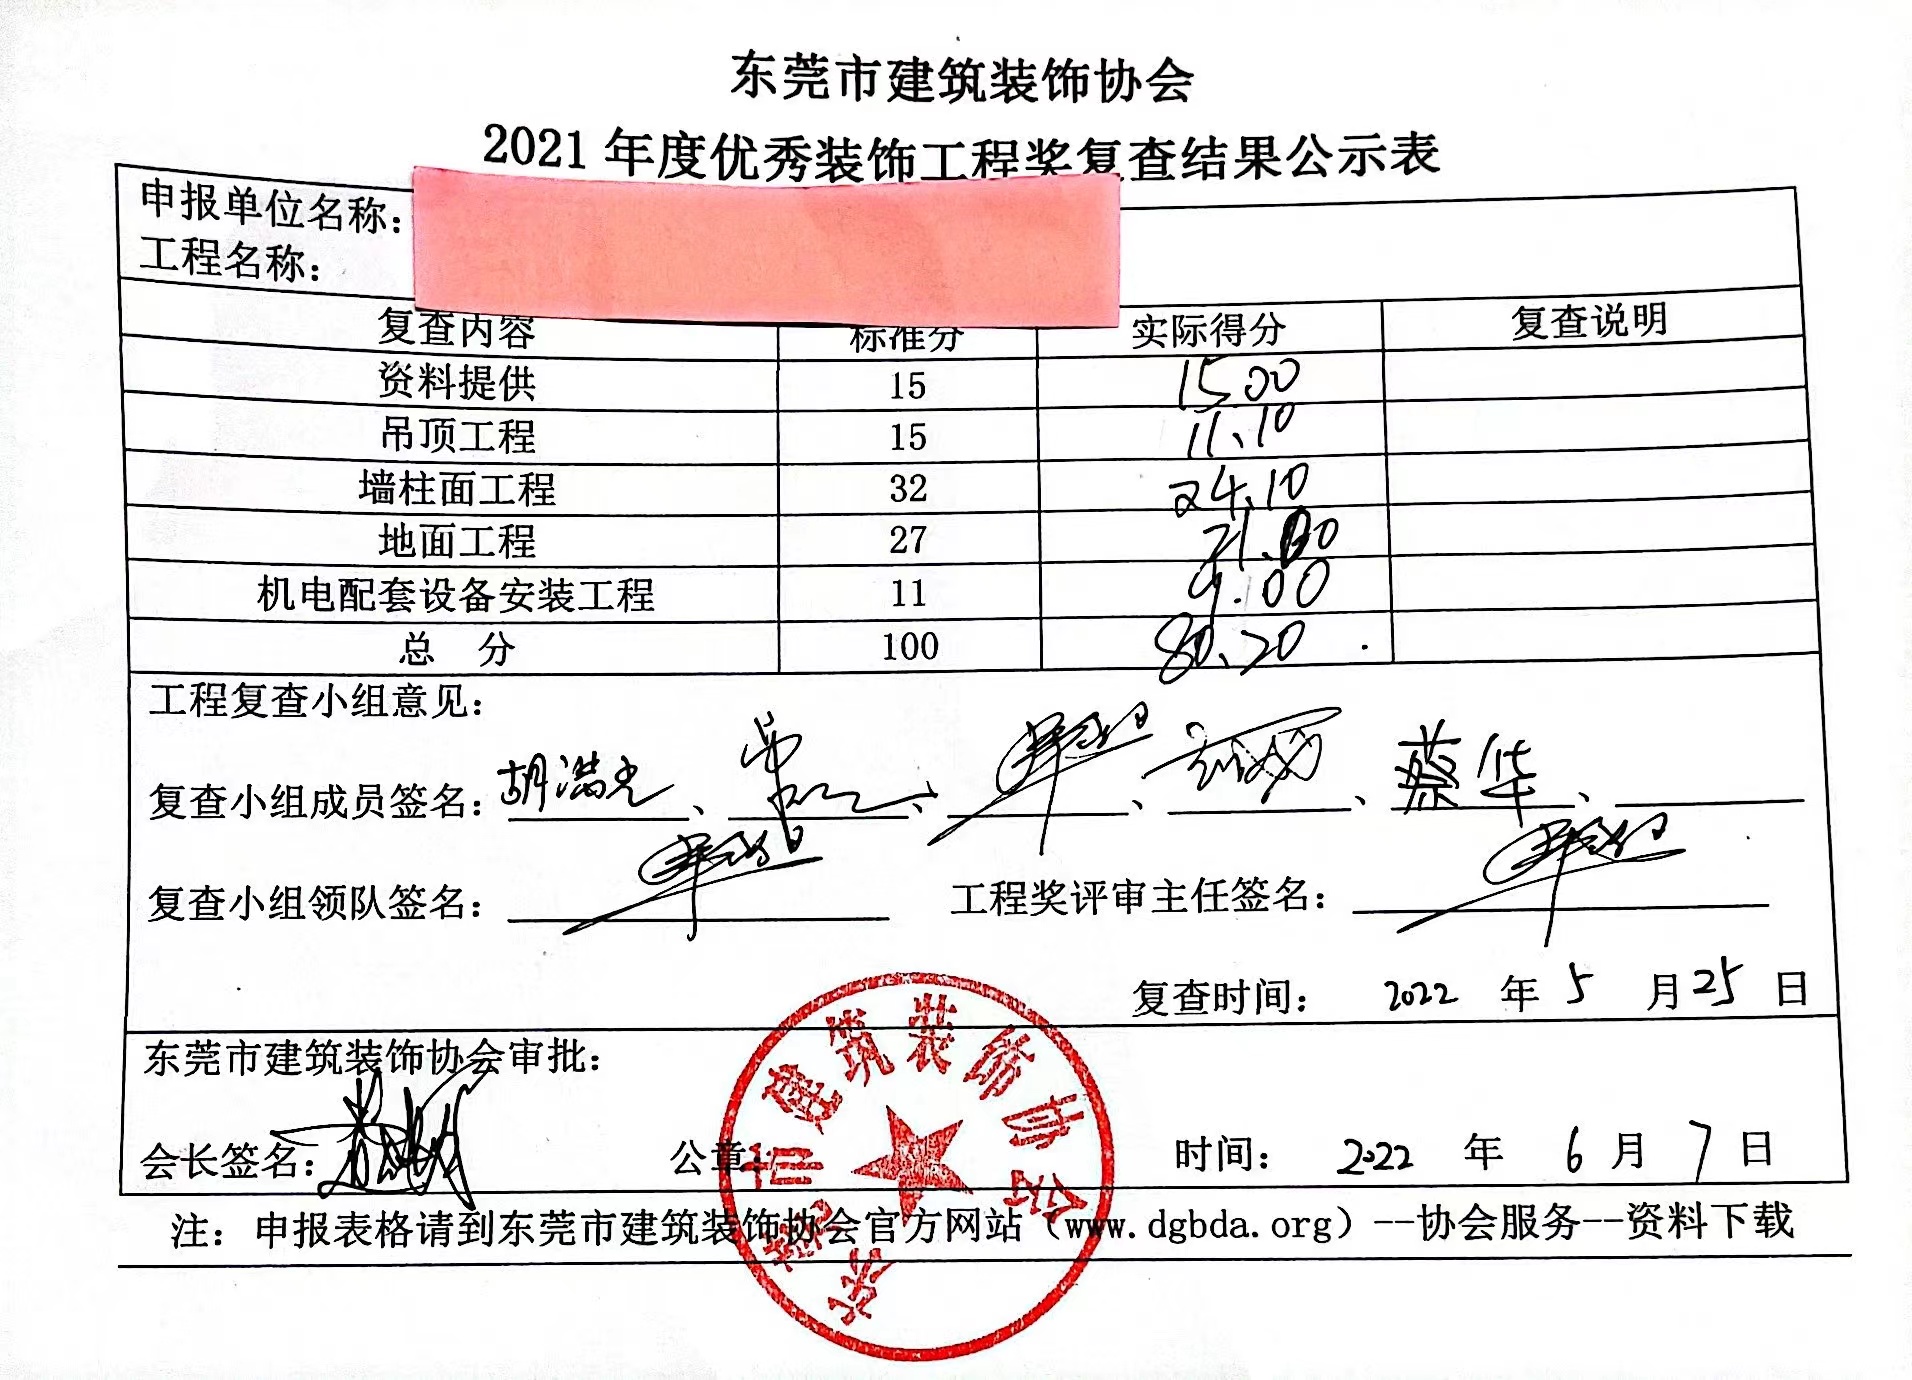 东莞市建筑装饰协会
2021年度优秀装饰工程奖复查结果公示表
申报单位名称：
工程名称：
复查内容 标准分 实际得分 复查说明
资料提供 15 15.00
吊顶工程 15 11.10
墙柱面工程 32 24.10
地面工程 27 21.00
机电配套设备安装工程 11 9.00
总 分 100 80.20
工程复查小组意见：
复查小组成员签名：胡满光、 、 、 、蔡华、
复查小组领队签名： 工程奖评审主任签名：
复查时间： 2022 年 5 月 25 日
东莞市建筑装饰协会审批：
会长签名： 公章： 时间： 2022 年 6 月 7 日
东莞市建筑装饰协会
注：申报表格请到东莞市建筑装饰协会官方网站（www.dgbda.org）--协会服务--资料下载